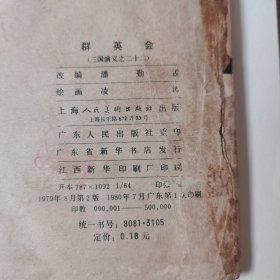 群英会
(三国演义之二十二)
改编 潘勤孟
绘画 凌涛
上海人民美术出版社出版
上海长乐路672弄33号
广东人民出版社重印
广东省新华书店发行
江西新华印刷厂印刷
开本787×1092 1/64 印张
1979年8月第2版 1980年7月广东第1次印刷
印数 000,001—500,000
统一书号:8081·3105
定价:0.18元